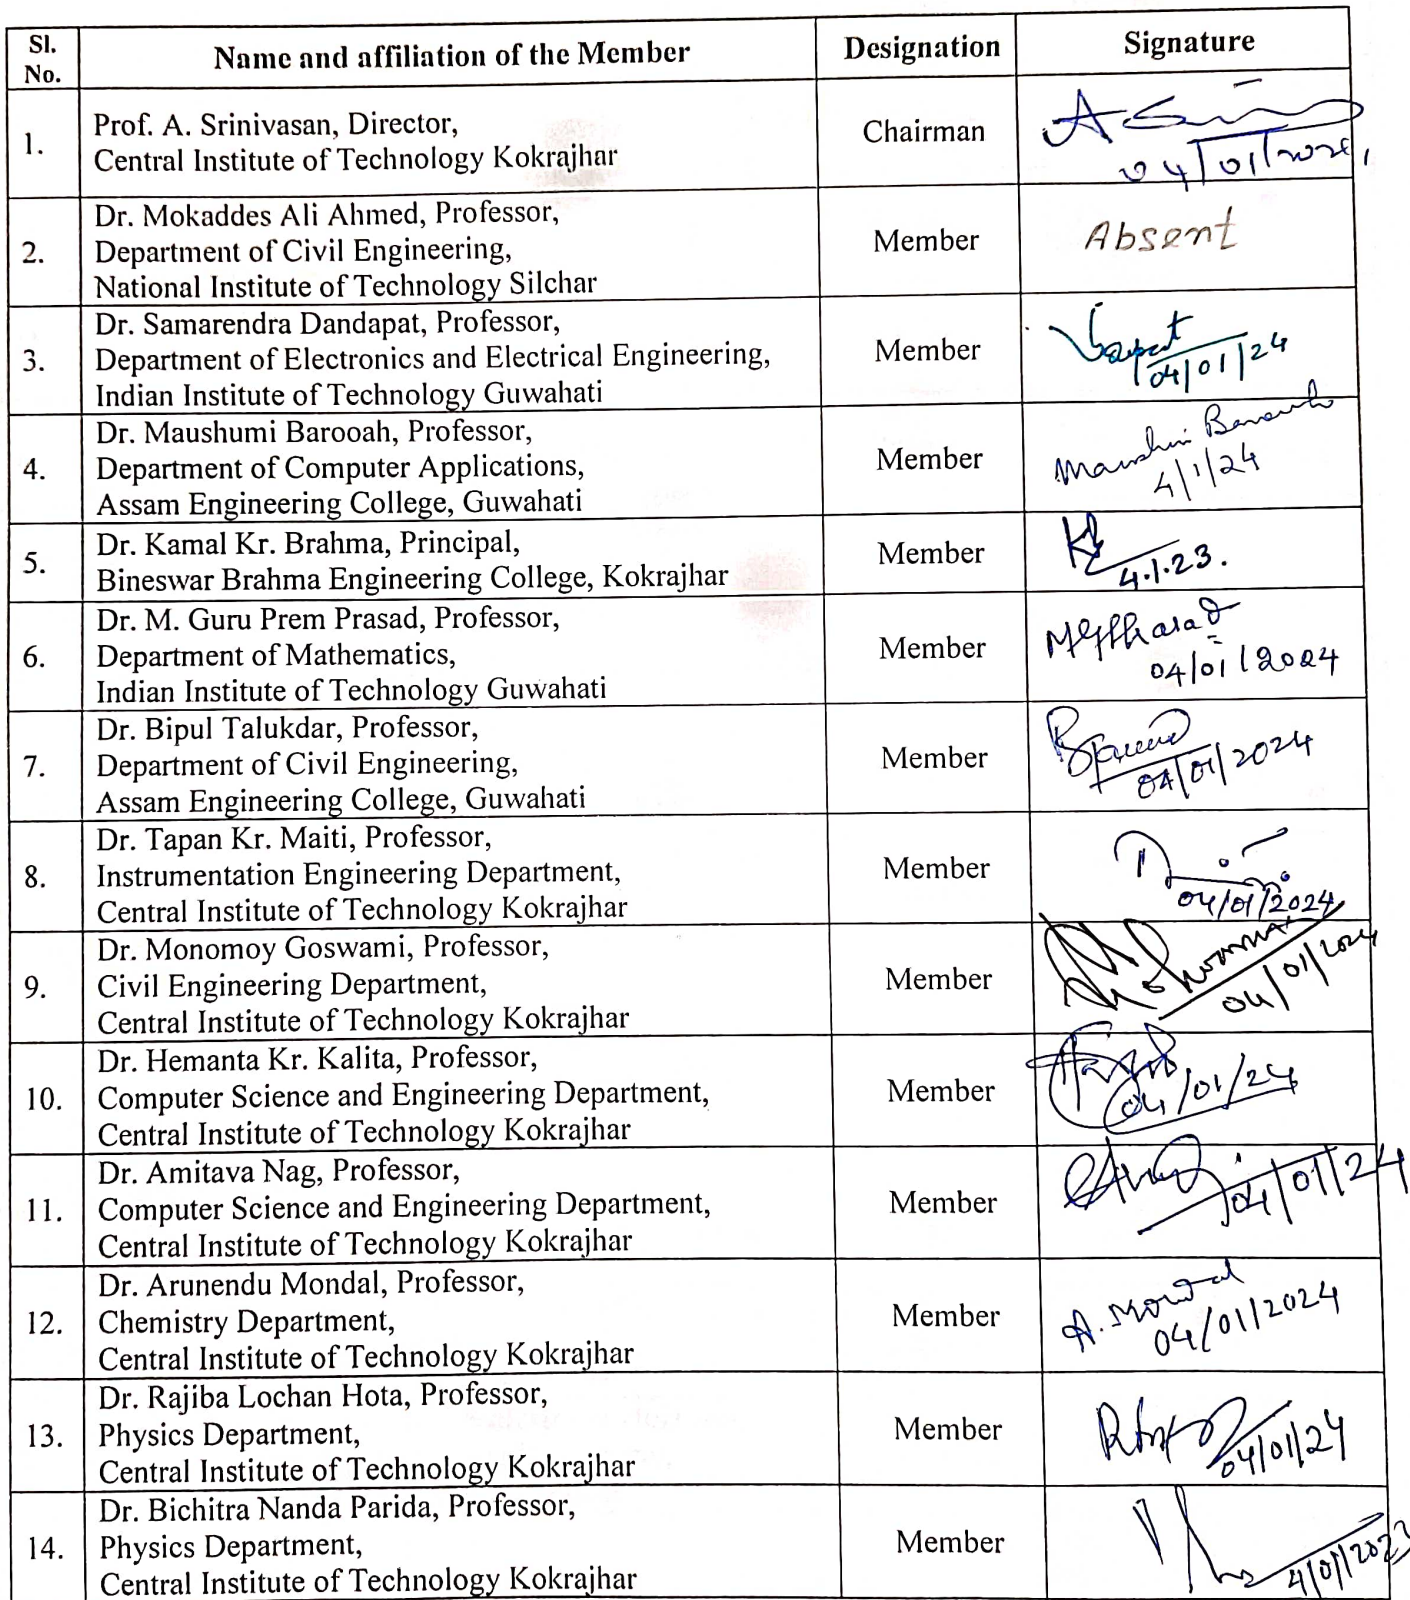 Sl. No.
Name and affiliation of the Member
Designation
Signature
1.
Prof. A. Srinivasan, Director,
Central Institute of Technology Kokrajhar
Chairman
04/01/2024
2.
Dr. Mokaddes Ali Ahmed, Professor,
Department of Civil Engineering,
National Institute of Technology Silchar
Member
Absent
3.
Dr. Samarendra Dandapat, Professor,
Department of Electronics and Electrical Engineering,
Indian Institute of Technology Guwahati
Member
04/01/24
4.
Dr. Maushumi Barooah, Professor,
Department of Computer Applications,
Assam Engineering College, Guwahati
Member
4/1/24
5.
Dr. Kamal Kr. Brahma, Principal,
Bineswar Brahma Engineering College, Kokrajhar
Member
4.1.23.
6.
Dr. M. Guru Prem Prasad, Professor,
Department of Mathematics,
Indian Institute of Technology Guwahati
Member
04/01/2024
7.
Dr. Bipul Talukdar, Professor,
Department of Civil Engineering,
Assam Engineering College, Guwahati
Member
04/01/2024
8.
Dr. Tapan Kr. Maiti, Professor,
Instrumentation Engineering Department,
Central Institute of Technology Kokrajhar
Member
04/01/2024
9.
Dr. Monomoy Goswami, Professor,
Civil Engineering Department,
Central Institute of Technology Kokrajhar
Member
04/01/2024
10.
Dr. Hemanta Kr. Kalita, Professor,
Computer Science and Engineering Department,
Central Institute of Technology Kokrajhar
Member
04/01/24
11.
Dr. Amitava Nag, Professor,
Computer Science and Engineering Department,
Central Institute of Technology Kokrajhar
Member
04/01/24
12.
Dr. Arunendu Mondal, Professor,
Chemistry Department,
Central Institute of Technology Kokrajhar
Member
A. Mondal
04/01/2024
13.
Dr. Rajiba Lochan Hota, Professor,
Physics Department,
Central Institute of Technology Kokrajhar
Member
04/01/24
14.
Dr. Bichitra Nanda Parida, Professor,
Physics Department,
Central Institute of Technology Kokrajhar
Member
4/01/2023